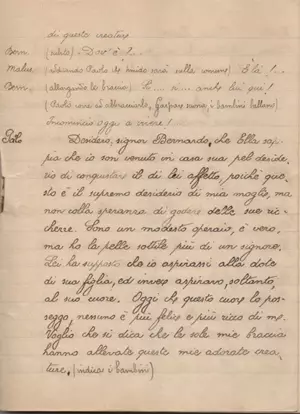 di queste creature
Bern. (subito) Dov'è?..
Malvi. È là!..
Bern. Sì.... sì.... anche lui, qui!
(Paolo corre l'abbraccia, Gaspare suona, i bambini ballano)
Incomincio oggi a vivere!
Paolo Desidero, signor Bernardo, che Ella sap-
pia che io son venuto in casa sua pel deside-
rio di conquistare il di lei affetto, poiché que-
sto è il supremo desiderio di mia moglie, ma
non colla speranza di godere delle sue ric-
chezze. Sono un modesto operaio, è vero,
ma ho la pelle sottile più di un signore.
Lei ha supposto che io aspirassi alla dote
di sua figlia, ed invece aspiravo, soltanto,
al suo cuore. Oggi che questo cuore lo pos-
seggo, nessuno è più felice e più ricco di me.
Voglio che si dica che le sole mie braccia
hanno allevate queste mie adorate crea-
ture. (indica i bambini)